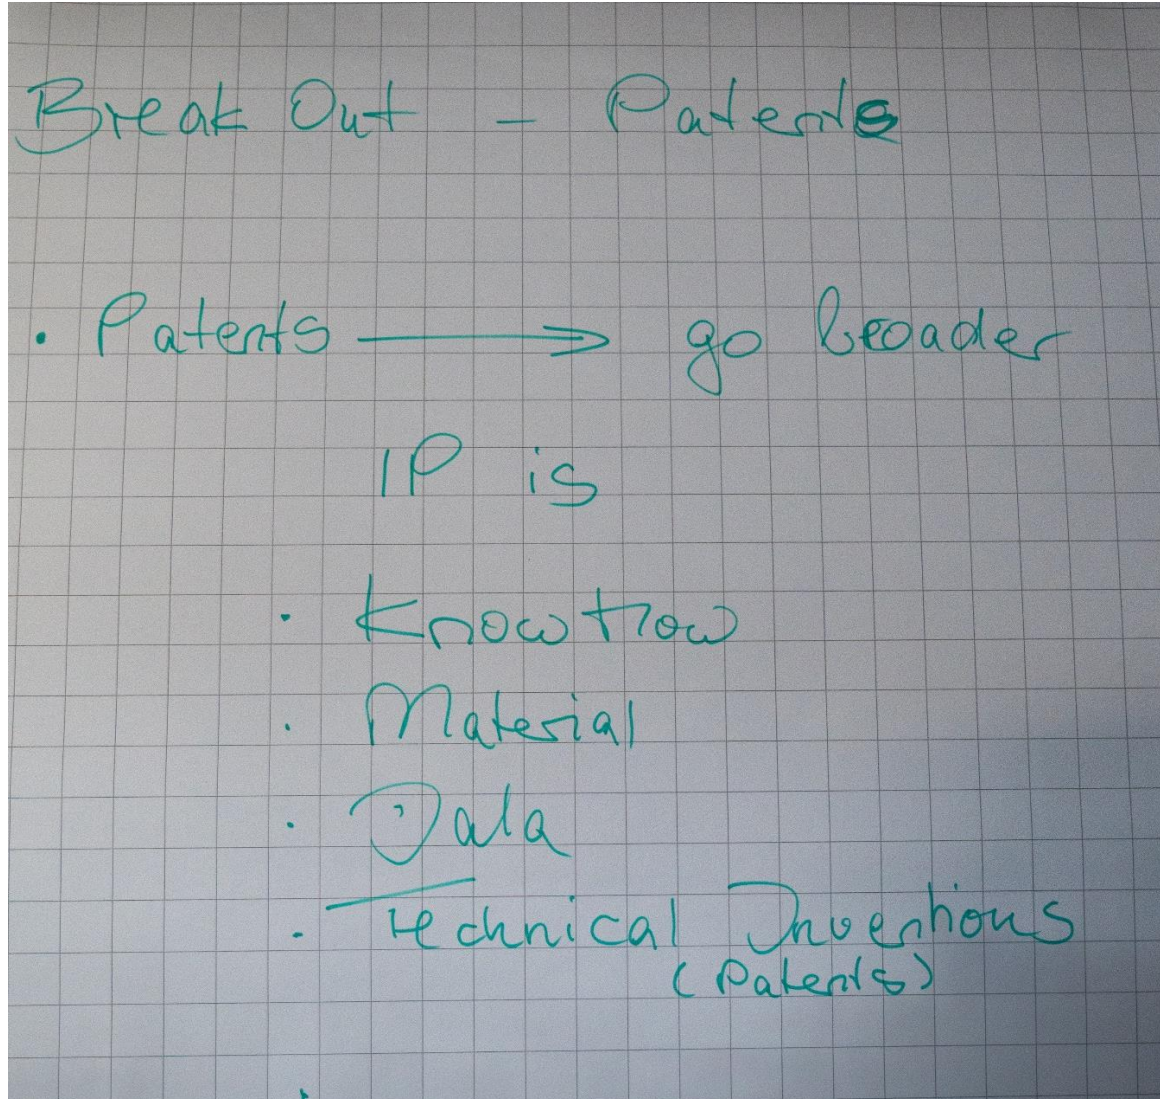 Break Out - Patents
• Patents ⟶ go broader
IP is
• Know How
• Material
• Data
• Technical Inventions
(Patents)